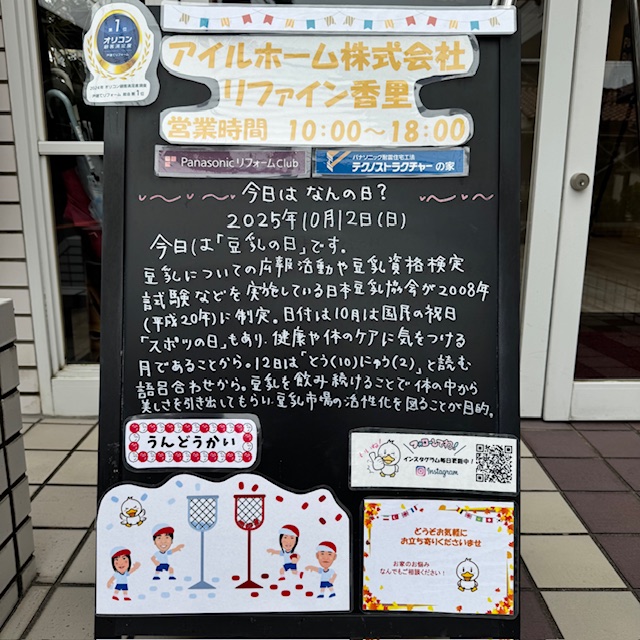 第1位
オリコン
顧客満足度
戸建てリフォーム 総合 第1位
アイルホーム株式会社
リファイン香里
営業時間 10:00～18:00
Panasonic リフォームClub
パナソニック耐震住宅工法
テクノストラクチャーの家
今日は なんの日?
2025年10月12日(日)
今日は「豆乳の日」です。
豆乳についての広報活動や豆乳資格検定
試験などを実施している日本豆乳協会が2008年
(平成20年)に制定。日付は10月は国民の祝日
「スポーツの日」もあり、健康や体のケアに気をつける
月であることから。12日は「とう(10)にゅう(2)」と読む
語呂合わせから。豆乳を飲み続けることで体の中から
美しさを引き出してもらい、豆乳市場の活性化を図ることが目的。
うんどうかい
フォローしてね!
インスタグラム毎日更新中!
Instagram
どうぞお気軽に
お立ち寄りくださいませ
お家のお悩み
なんでもご相談ください!